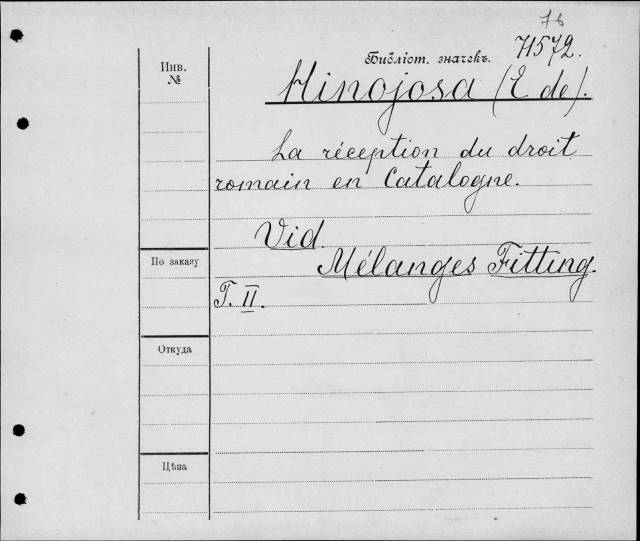 76
71572.
Инв.
№
Библіот. значекъ.
Hinojosa (E de).
La réception du droit
romain en Catalogne.
Vid.
По заказу
Mélanges Fitting.
T. II.
Откуда
Цѣна